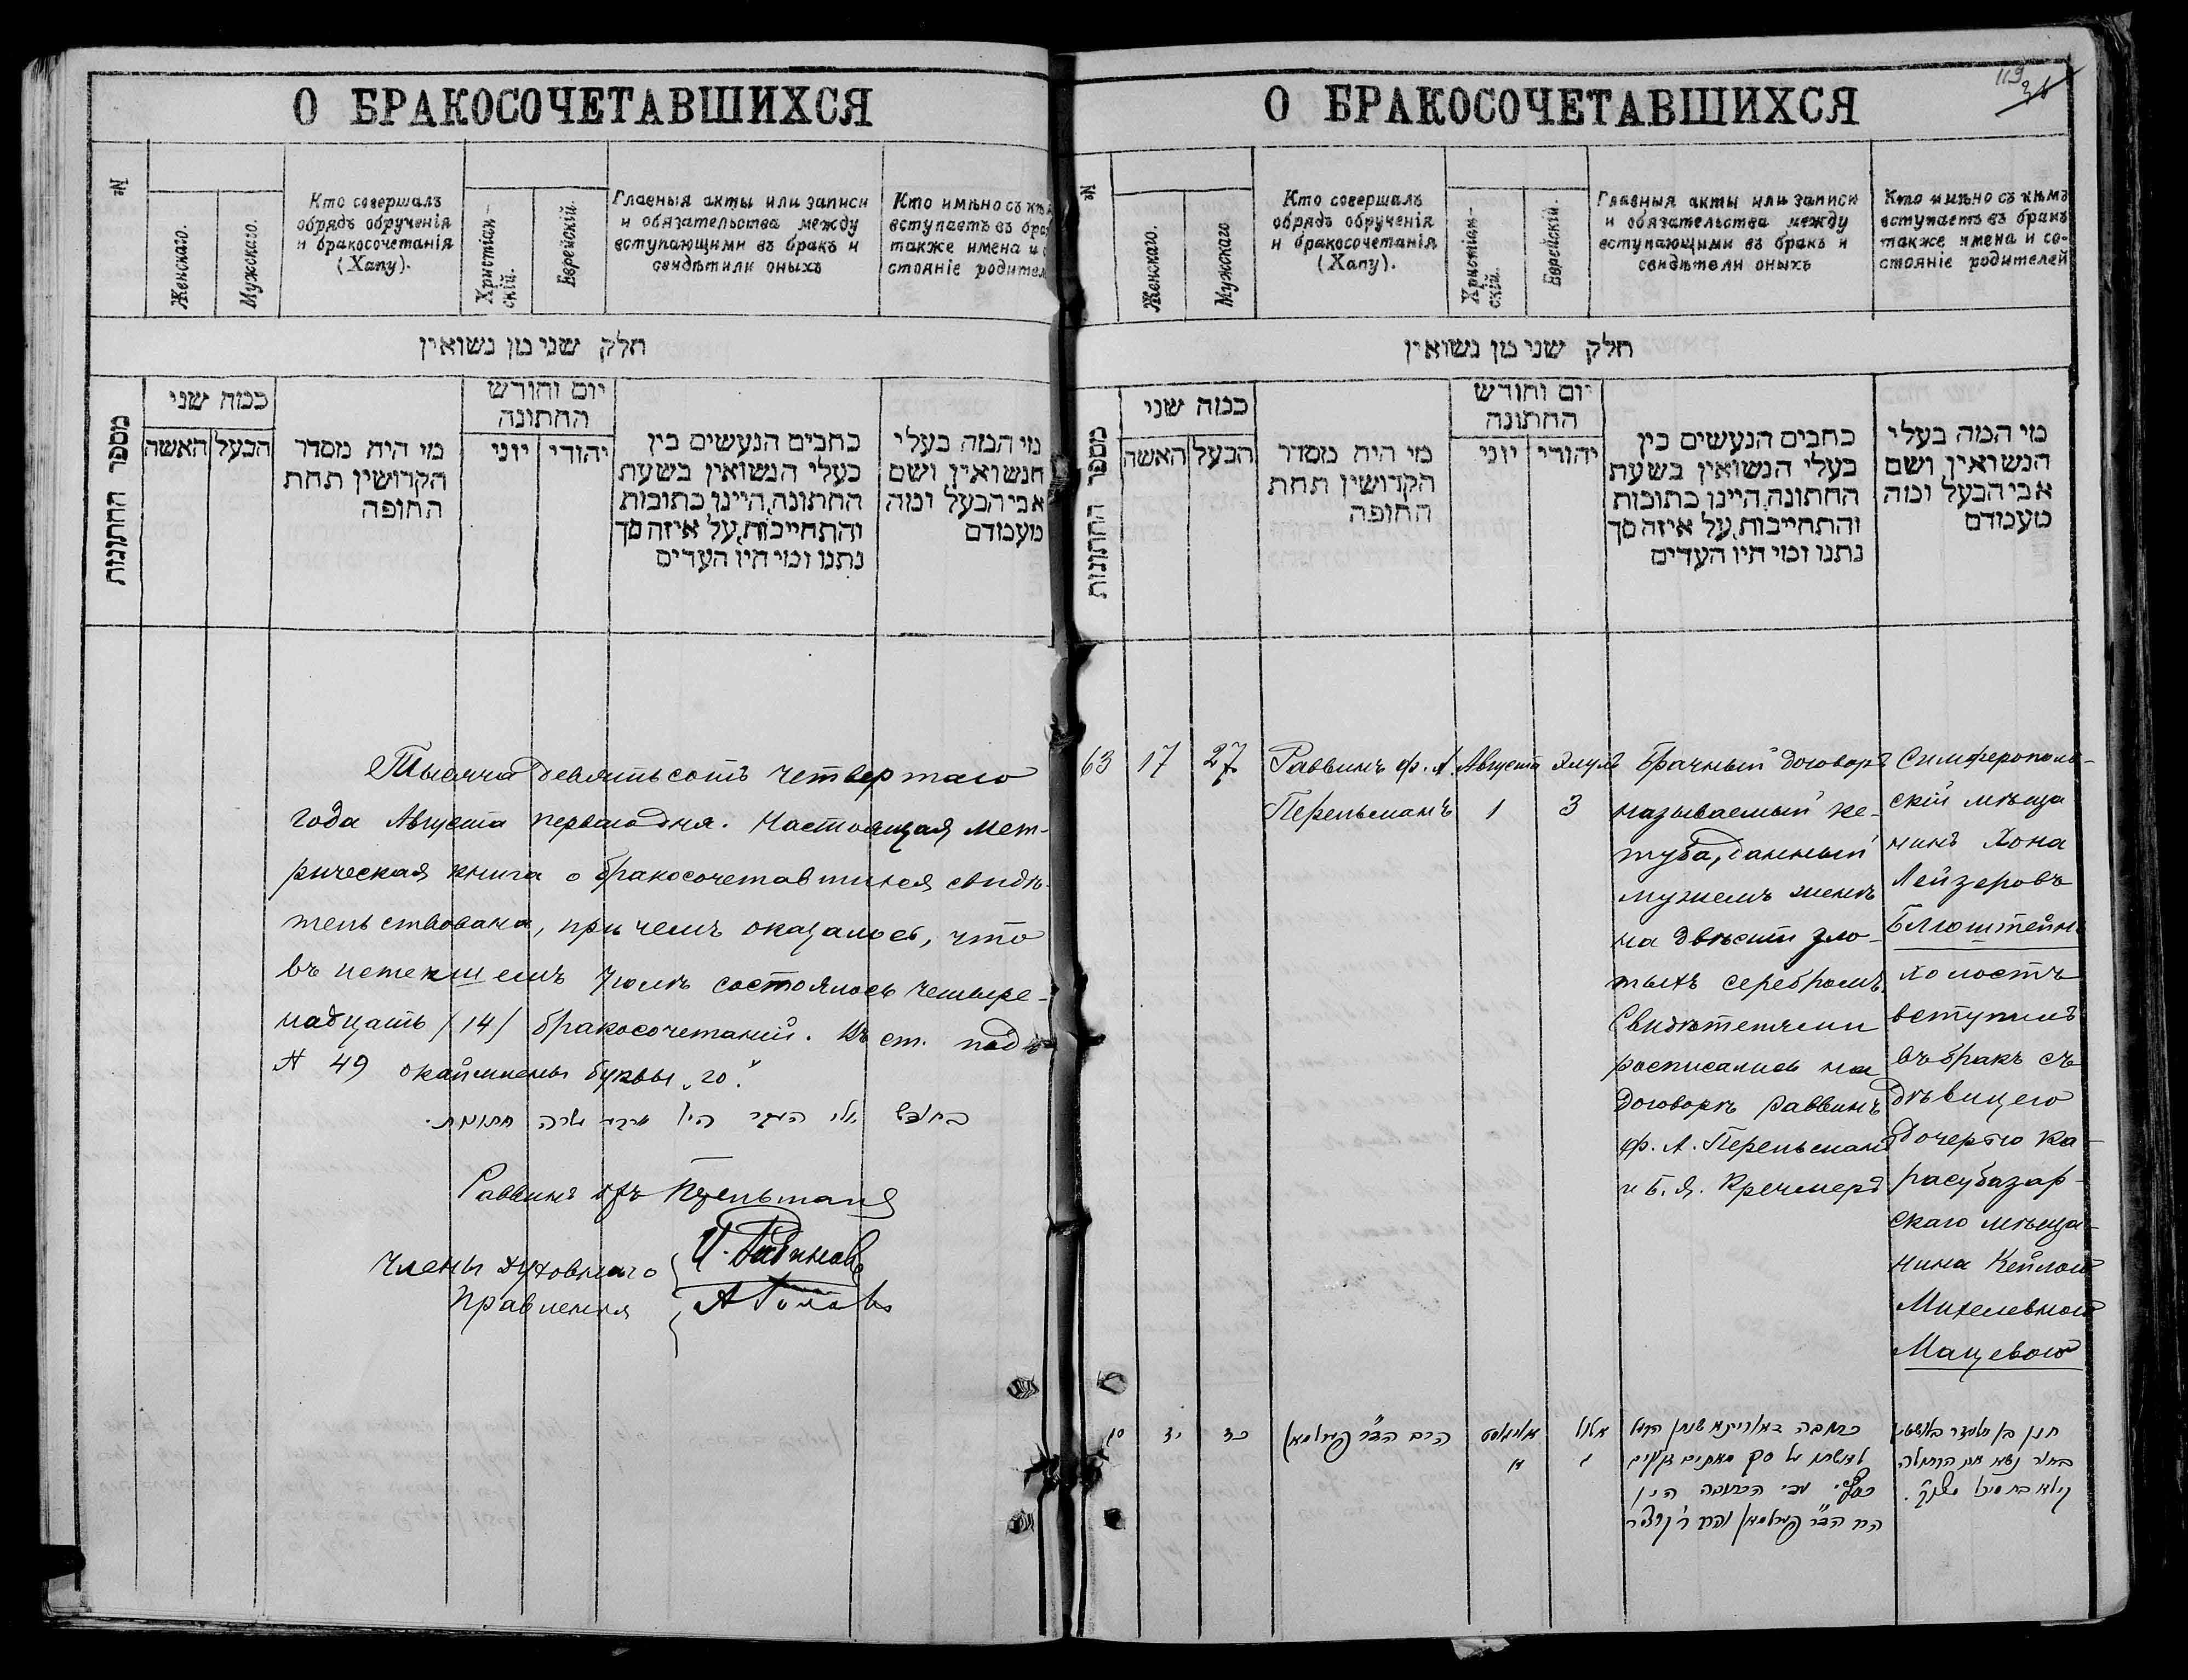 О БРАКОСОЧЕТАВШИХСЯ
№
Женскаго.
Мужскаго.
Кто совершалъ
обрядъ обрученія
и бракосочетанія
(Хапу).
Христіан-
скій.
Еврейскій.
Главныя акты или записи
и обязательства между
вступающими въ бракъ и
свидѣтили оныхъ
Кто имѣно съ
вступаетъ въ
также имена и
стояніе
חלק שני מן נשואין
מספר החתונות
כמה שני
האשה
הבעל
מי היה מסדר
הקדושין תחת
החופה
יום וחודש
החתונה
יוני
יהודי
כתבים הנעשים בין
בעלי הנשואין בשעת
החתונה, היינו כתובות
והתחייבות, על איזה סך
נתנו ומי היו העדים
מי המה בעלי
הנשואין ושם
אבי הבעל ומה
מעמדם
Тысяча девятьсотъ четвертаго
года Августа перваго дня. Настоящая мет-
рическая книга о бракосочетавшихся свидѣ-
тельствована, при чемъ оказалось, что
въ истекшемъ Іюлѣ состоялось четыре-
надцать (14) бракосочетаній. Въ ст. подъ
№ 49 окаймлены буквы „го“.
Раввинъ Перельманъ
Члены духовнаго
Правленія
119
О БРАКОСОЧЕТАВШИХСЯ
№
Женскаго.
Мужскаго
Кто совершалъ
обрядъ обрученія
и бракосочетанія
(Хапу).
Христіан-
скій.
Еврейскій.
Главныя акты или записи
и обязательства между
вступающими въ бракъ и
свидѣтели оныхъ
Кто имѣно съ кѣмъ
вступаетъ въ бракъ
также имена и со-
стояніе родителей
חלק שני מן נשואין
מספר החתונות
כמה שני
האשה
הבעל
מי היה מסדר
הקדושין תחת
החופה
יום וחודש
החתונה
יוני
יהודי
כתבים הנעשים בין
בעלי הנשואין בשעת
החתונה, היינו כתובות
והתחייבות, על איזה סך
נתנו ומי היו העדים
מי המה בעלי
הנשואין ושם
אבי הבעל ומה
מעמדם
63
17
27
Раввинъ ф. А.
Перельманъ
Августа
1
Элулъ
3
Брачный договоръ
называемый ке-
туба, данный
мужемъ женѣ
на двѣсти зло-
тыхъ серебромъ.
Свидѣтелями
росписались на
договорѣ раввинъ
ф. А. Перельманъ
и Б. Я. Кречмеръ
Симферополь-
скій мѣща
нинъ Хона
Лейзеровъ
Блюштейнъ
холостъ
вступилъ
въ бракъ съ
дѣвицею
дочерью ка-
расубазар-
скаго мѣща-
нина Кейлой
Михелевной
Мацевою